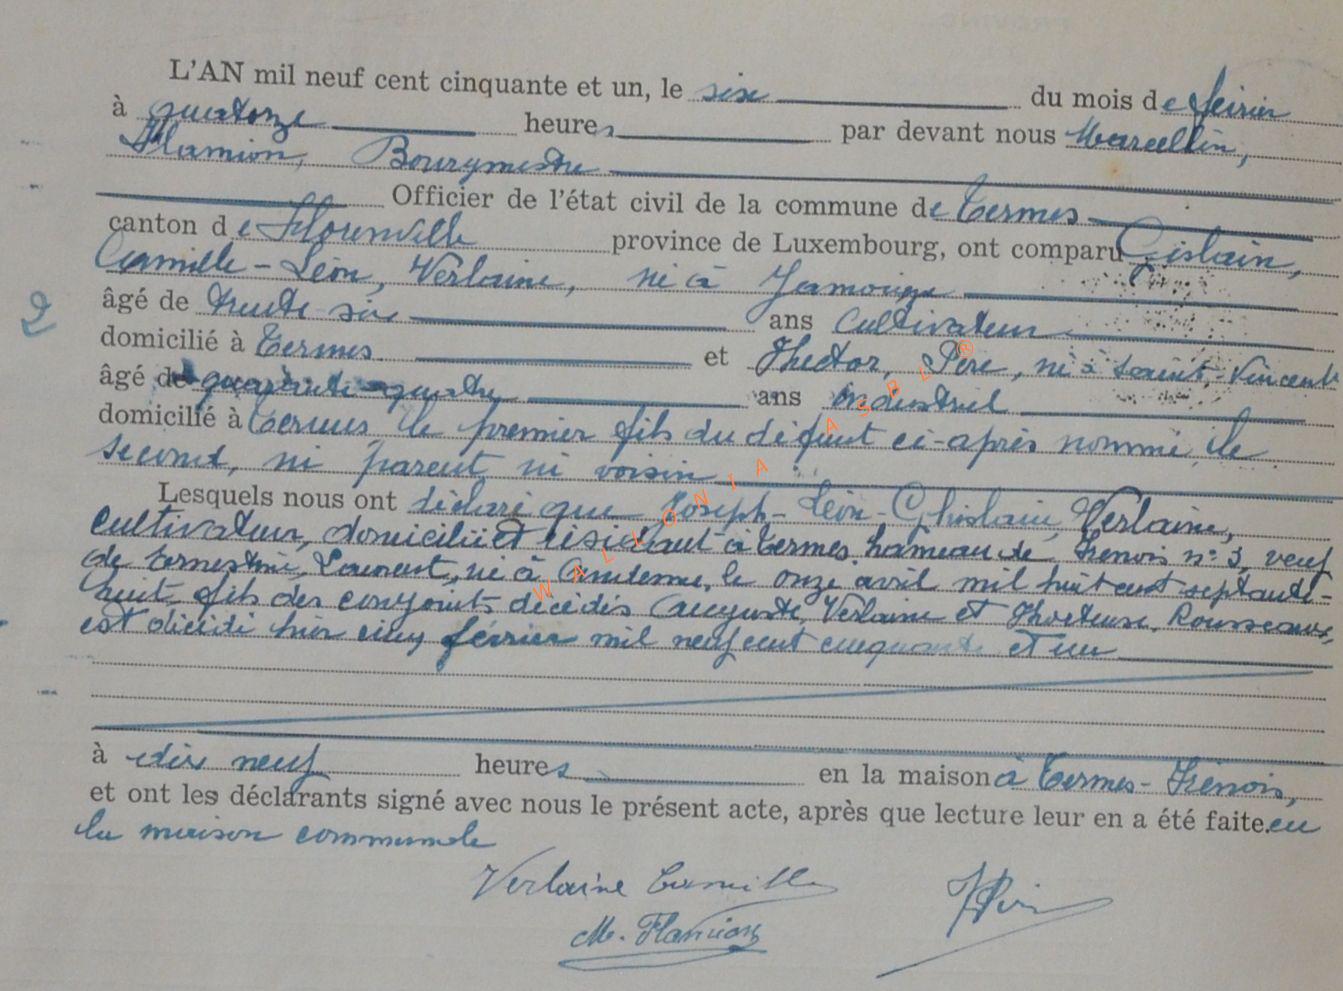 L'AN mil neuf cent cinquante et un, le six du mois de février
à quatorze heures par devant nous Marcellin,
Flamion, Bourgmestre
Officier de l'état civil de la commune de Termes
canton de Florenville province de Luxembourg, ont comparu Gislain,
Camille-Léon, Verlaine, né à Jamoigne
2
âgé de trente six ans cultivateur
domicilié à Termes et Hector, Père, né à Saint-Vincent
âgé de quarante-quatre ans industriel
domicilié à Termes, le premier fils du défunt ci-après nommé, le
second, ni parent ni voisin
Lesquels nous ont déclaré que Joseph-Léon-Ghislain, Verlaine,
cultivateur, domicilié et résidant à Termes hameau de Frenois n° 3, veuf
de Ernestine, Laurent, né à le onze avril mil huit cent septante-
huit, fils des conjoints décédés Auguste, Verlaine et Hortense, Rousseaux,
est décédé hier cinq février mil neuf cent cinquante et un
à dix neuf heures en la maison à Termes-Frénois,
et ont les déclarants signé avec nous le présent acte, après que lecture leur en a été faite. en
la maison communale
Verlaine Camille
M. Flamion
WALLONIA ASBL ®